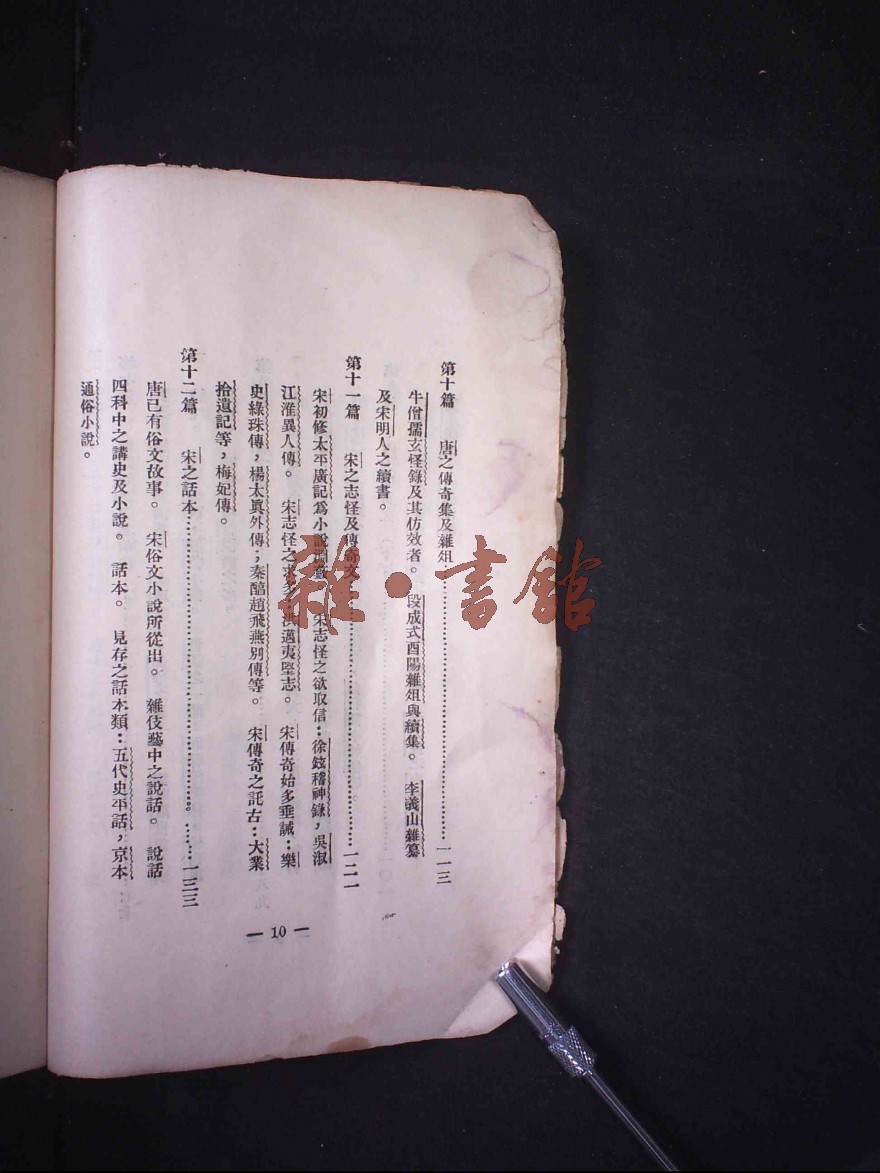 第十篇 唐之傳奇集及雜俎……一一三
牛僧孺玄怪錄及其仿效者。 段成式酉陽雜俎與續集。 李義山雜纂
及宋明人之續書。
第十一篇 宋之志怪及傳奇文……一二一
宋初修太平廣記爲小說淵 宋志怪之欲取信：徐鉉稽神錄，吳淑
江淮異人傳。 宋志怪之求多 洪邁夷堅志。 宋傳奇始多垂誡：樂
史綠珠傳，楊太眞外傳；秦醇趙飛燕別傳等。 宋傳奇之託古：大業
拾遺記等，梅妃傳。
第十二篇 宋之話本……一三三
唐已有俗文故事。 宋俗文小說所從出。 雜伎藝中之說話。 說話
四科中之講史及小說。 話本。 見存之話本類：五代史平話，京本
通俗小說。
— 10 —
雜·書館